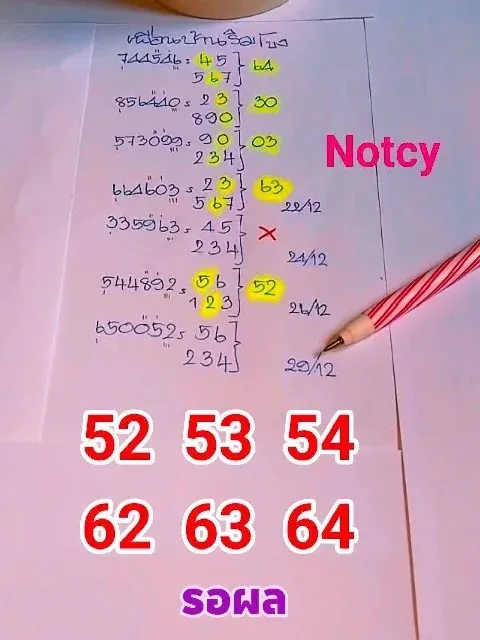 เพื่อนบ้านริมโขง
744546 = 45 } 64
567
856440 = 23 } 30
890
573099 = 90 } 03
234
Notcy
664603 = 23 } 63
567 22/12
335963 = 45 } ×
234 24/12
544892 = 56 } 52
123 26/12
650052 = 56 }
234 29/12
52 53 54
62 63 64
รอผล